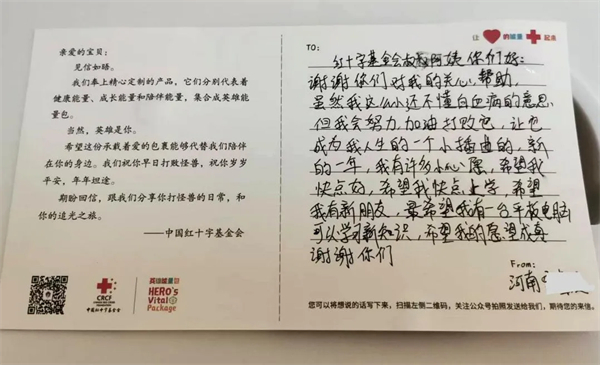 亲爱的宝贝:
见信如晤。
我们奉上精心定制的产品,它们分别代表着
健康能量、成长能量和陪伴能量,集合成英雄能
量包。
当然,英雄是你。
希望这份承载着爱的包裹能够代替我们陪伴
在你的身边。我们祝你早日打败怪兽,祝你岁岁
平安,年年坦途。
期盼回信,跟我们分享你打怪兽的日常,和
你的追光之旅。
——中国红十字基金会
CRCF
中国红十字基金会
英雄能量
HERO's
Vital
Package
让 的能量 起来
TO:
红十字基金会叔叔阿姨你们好:
谢谢你们对我的关心,帮助,
虽然我这么小还不懂白血病的意思
但我会努力,加油打败它,让它
成为我人生的一个小插曲的,新
的一年,我有许多小心愿,希望我
快点好,希望我快点上学,希望
我有新朋友,最希望我有一台平板电脑
可以学习新知识,希望我的愿望成真
谢谢你们
From:
河南
您可以将想说的话写下来,扫描左侧二维码,关注公众号拍照发送给我们,期待您的来信。